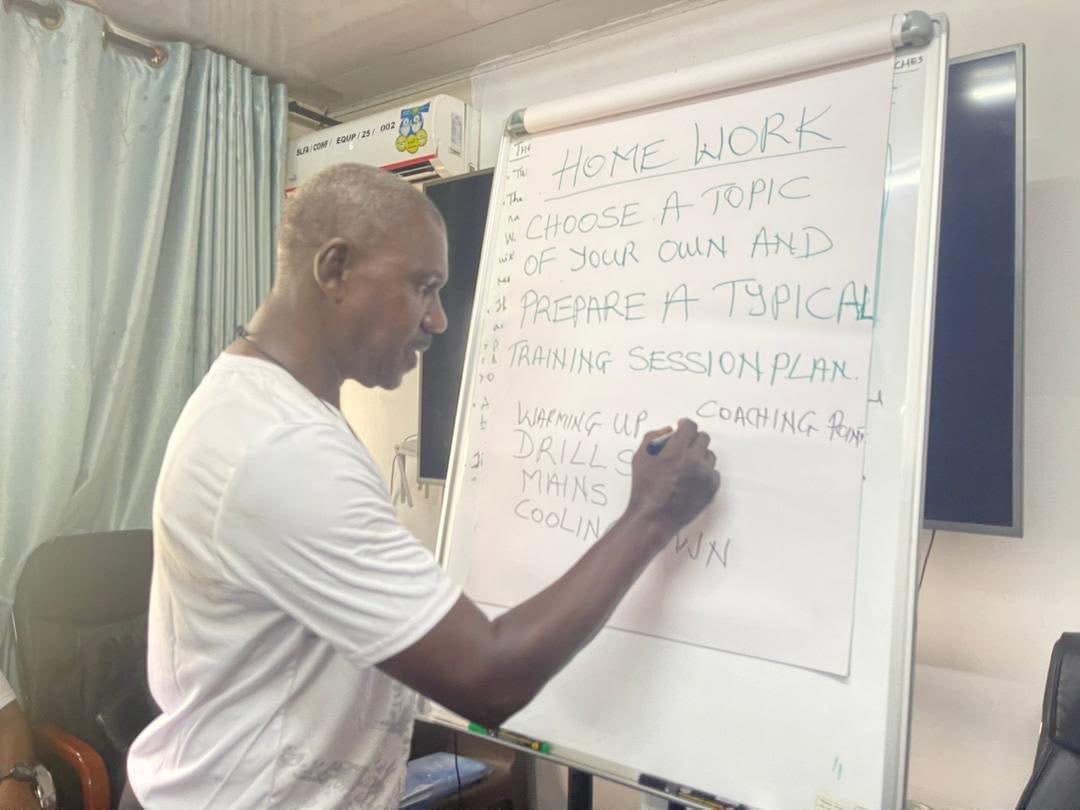 SLFA/CONF/ EQUP/25/ 002
HOME WORK
CHOOSE A TOPIC
OF YOUR OWN AND
PREPARE A TYPICAL
TRAINING SESSION PLAN.
WARMING UP COACHING
DRILLS
MAINS